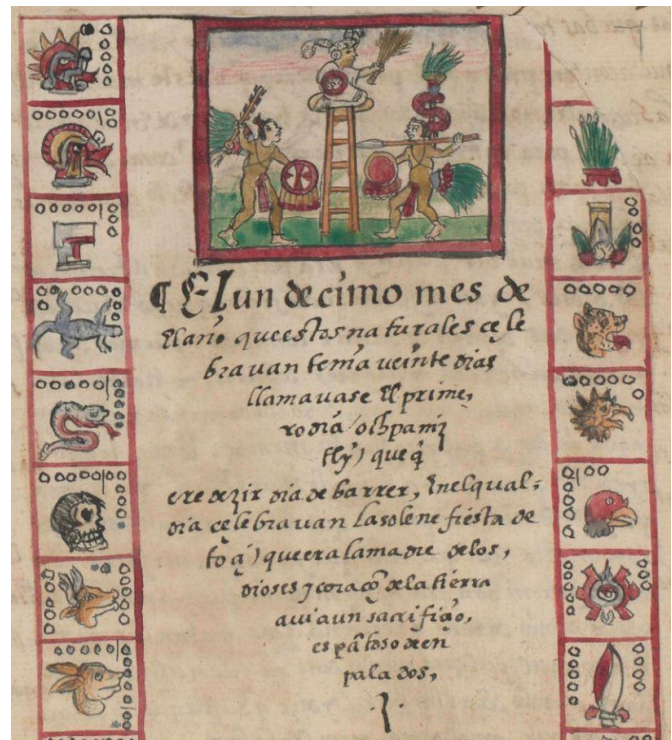 ¶ El un decimo mes de
el año que estos naturales çele
bravan tenia veinte dias
llamavase el prime,
ro dia / ochpaniz
tly) que q̃
ere dezir dia de barrer, en el qual-
dia çelebravan la solene fiesta de
toçi) que era la madre de los,
dioses y coraçõ de la tierra
avia un sacrifiçio,
espãtoso de en
palados,